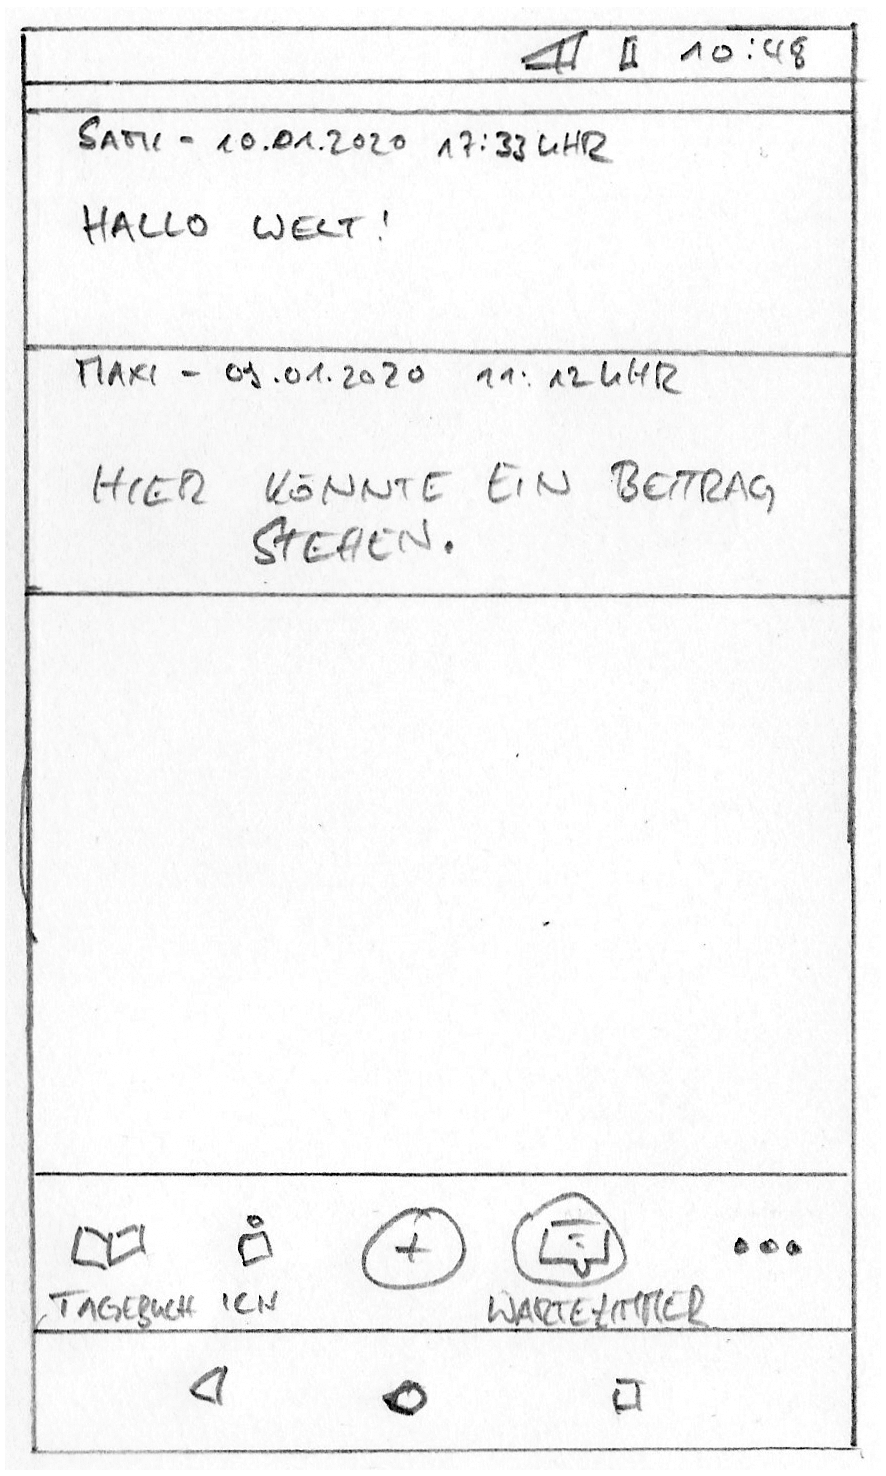 10:48
- 10.01.2020 17:33 UHR
HALLO WELT!
MAXI - 09.01.2020 11:12 UHR
HIER KÖNNTE EIN BEITRAG
STEHEN.
TAGEBUCH ICH WARTEZIMMER